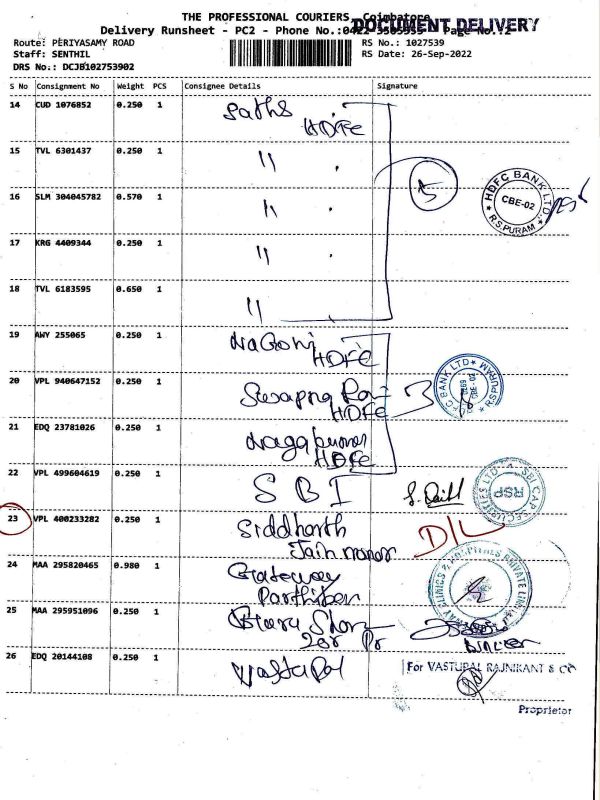 THE PROFESSIONAL COURIERS, Coimbatore
DOCUMENT DELIVERY
Delivery Runsheet - PC2 - Phone No.:0422 Page No.:2
Route: PERIYASAMY ROAD
RS No.: 1027539
Staff: SENTHIL
RS Date: 26-Sep-2022
DRS No.: DCJB102753902
S No Consignment No Weight PCS Consignee Details Signature
14 CUD 1076852 0.250 1 Saths
HDFC
15 TVL 6301437 0.250 1 "
5
HDFC BANK LTD.
CBE-02
R.S.PURAM
16 SLM 304045782 0.570 1 "
17 KRG 4409344 0.250 1 "
18 TVL 6183595 0.650 1 "
19 AWY 255065 0.250 1
HDFC
20 VPL 940647152 0.250 1 Swapna
HDFC
3
HDFC BANK LTD
R.S.PURAM
21 EDQ 23781026 0.250 1 Nagakumar
HDFC
22 VPL 499604619 0.250 1 SBI
SBI CAP SECURITIES LTD
RSP
23 VPL 400233282 0.250 1 Siddharth
Jain manor
D/L
24 MAA 295820465 0.980 1 Gateway
Parthiban
CLINICS & HOSPITALS PRIVATE LIMITED
25 MAA 295951096 0.250 1
26 EDQ 20144108 0.250 1 Vastupal
For VASTUPAL RAJNIKANT & CO
Proprietor